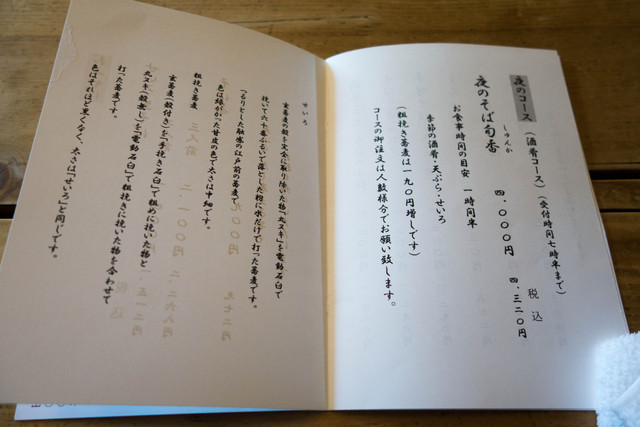 夜のコース（酒肴コース）（受付時間七時半まで）
税込
夜のそば旬香　四、〇〇〇円　四、三二〇円
しゅんか
お食事時間の目安　一時間半
季節の酒肴　天ぷら・せいろ
（粗挽き蕎麦は一九〇円増しです）
コースの御注文は人数様分でお願い致します。
せいろ
玄蕎麦の殻を完全に取り除いた物「丸ヌキ」を電動石臼で
挽いて六十番ふるいで落とした粉に水だけで打った蕎麦です。
「るりとした触感の江戸前の蕎麦で
色は緑がかった甘皮の色で太さは中細です。
粗挽き蕎麦
玄蕎麦（殻付き）を「手挽き石臼」で粗めに挽いた物と
丸ヌキ（殻無し）を「電動石臼」で粗挽きに挽いた物を合わせて
打った蕎麦です。
色はそれほど黒くなく、太さは「せいろ」と同じです。